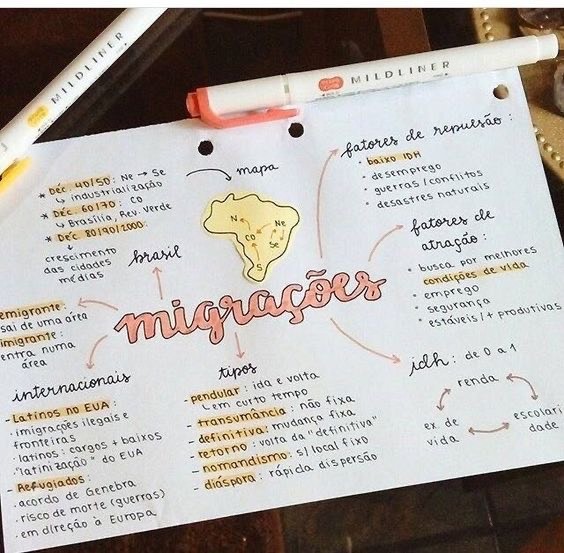 MILDLINER
MILDLINER
* Déc. 40/50: Ne → Se
↳ industrialização
* Déc. 60/70: CO
↳ Brasília, Rev. Verde
* Déc. 80/90/2000:
↳ crescimento
das cidades
médias
brasil
mapa
N
Ne
CO
Se
S
fatores de repulsão:
• baixo IDH
• desemprego
• guerras/conflitos
• desastres naturais
fatores de
atração:
• busca por melhores
condições de vida
• emprego
• segurança
• estáveis/+ produtivas
migrações
emigrante:
sai de uma área
imigrante:
entra numa
área
internacionais
- Latinos no EUA:
• imigrações ilegais e
fronteiras
• latinos: cargos + baixos
• "latinização" do EUA
- Refugiados:
• acordo de Genebra
• risco de morte (guerras)
• em direção à Europa
tipos
- pendular: ida e volta
↳ em curto tempo
- transumância: não fixa
- definitiva: mudança fixa
- retorno: volta da "definitiva"
- nomandismo: s/ local fixo
- diáspora: rápida dispersão
idh: de 0 a 1
renda
ex. de
vida
escolari
dade